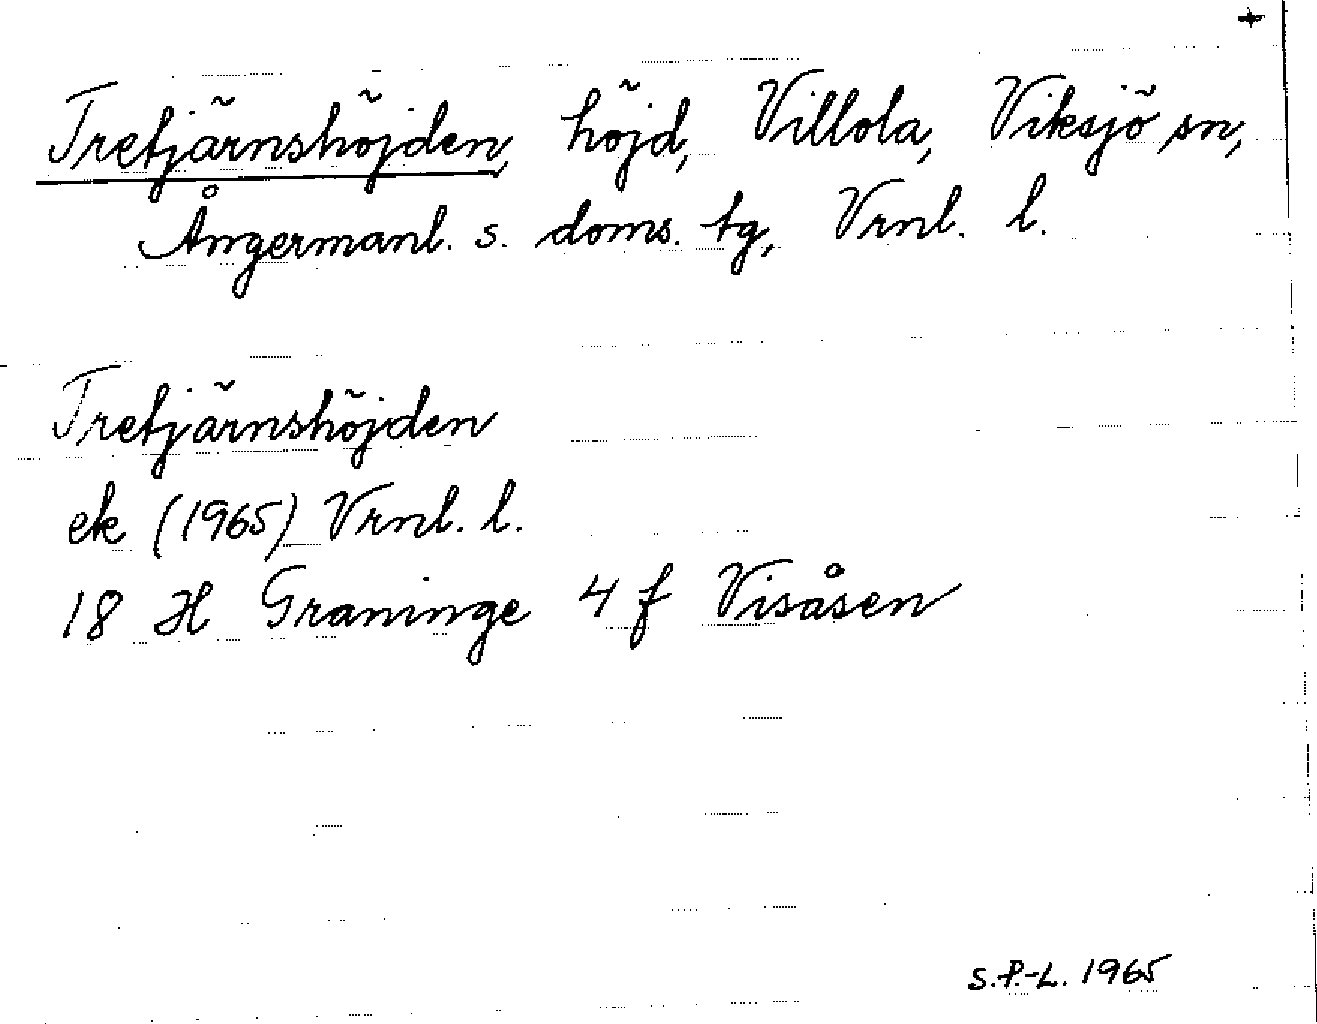 +
Tretjärnshöjden, höjd, Villola, Viksjö sn,
Ångermanl. s. doms. tg, Vrnl. l.
Tretjärnshöjden
ek (1965) Vrnl. l.
18 H Graninge 4 f Visåsen
S.P.-L. 1965